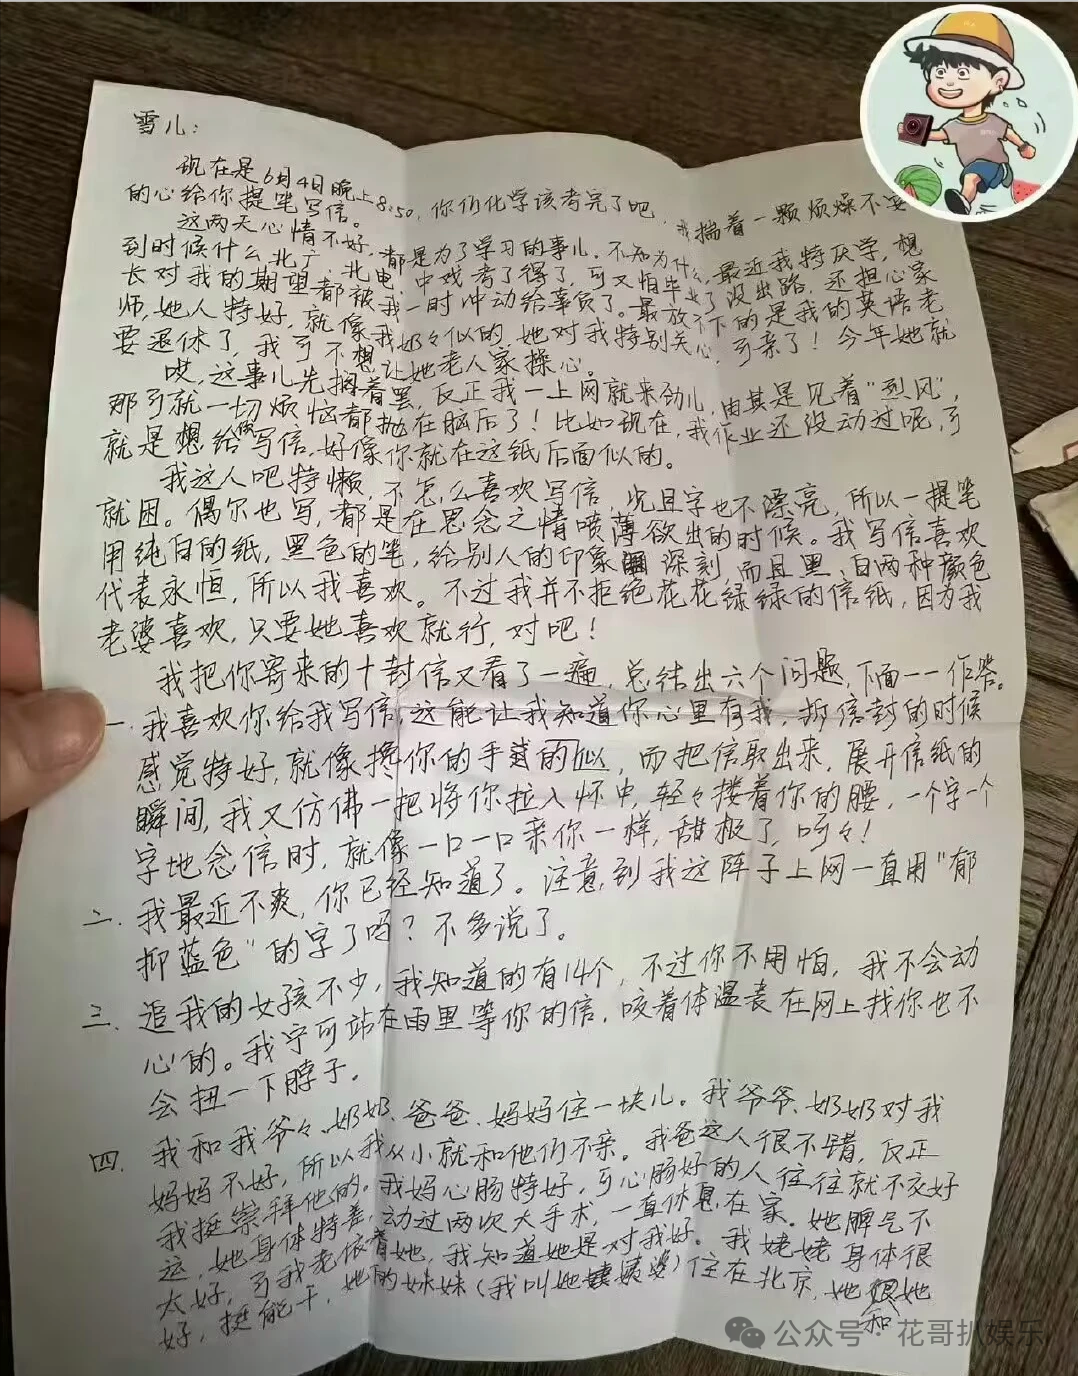 雪儿:
现在是6月4日晚上8:50,你们化学该考完了吧,我揣着一颗烦燥不安
的心给你提笔写信。
这两天心情不好,都是为了学习的事儿。不知为什么,最近我特厌学,想
到时候什么北广、北电、中戏考了得了,可又怕毕业了没出路,还担心家
长对我的期望都被我一时冲动给辜负了。最放不下的是我的英语老
师,她人特好,就像我奶々似的,她对我特别关心,可亲了!今年她就
要退休了,我可不想让她老人家操心。
哎,这事儿先搁着罢,反正我一上网就来劲儿,由其是见着"烈风",
那可就一切烦恼都抛在脑后了!比如现在,我作业还没动过呢,可
就是想给你写信,好像你就在这纸后面似的。
我这人吧特懒,不怎么喜欢写信,况且字也不漂亮,所以一提笔
就困。偶尔也写,都是在思念之情喷薄欲出的时候。我写信喜欢
用纯白的纸,黑色的笔,给别人的印象深刻,而且黑、白两种颜色
代表永恒,所以我喜欢。不过我并不拒绝花花绿绿的信纸,因为我
老婆喜欢,只要她喜欢就行,对吧!
我把你寄来的十封信又看了一遍,总结出六个问题,下面一一作答。
一.我喜欢你给我写信,这能让我知道你心里有我,拆信封的时候
感觉特好,就像搀你的手似的,而把信取出来,展开信纸的
瞬间,我又仿佛一把将你拉入怀中,轻々搂着你的腰,一个字一个
字地念信时,就像一口一口亲你一样,甜极了,呵々!
二.我最近不爽,你已经知道了。注意到我这阵子上网一直用"郁
抑蓝色"的字了吗?不多说了。
三.追我的女孩不少,我知道的有14个,不过你不用怕,我不会动
心的。我宁可站在雨里等你的信,咬着体温表在网上找你也不
会扭一下脖子。
四.我和我爷々、奶奶、爸爸、妈妈住一块儿。我爷爷、奶奶对我
妈妈不好,所以我从小就和他们不亲。我爸这人很不错,反正
我挺崇拜他的。我妈心肠特好,可心肠好的人往往就不交好
运,她身体特差,动过两次大手术,一直休息在家。她脾气不
太好,可我老依着她,我知道她是对我好。我姥姥身体很
好,挺能干,她的妹妹(我叫她姨婆)住在北京,她和她
公众号·花哥扒娱乐